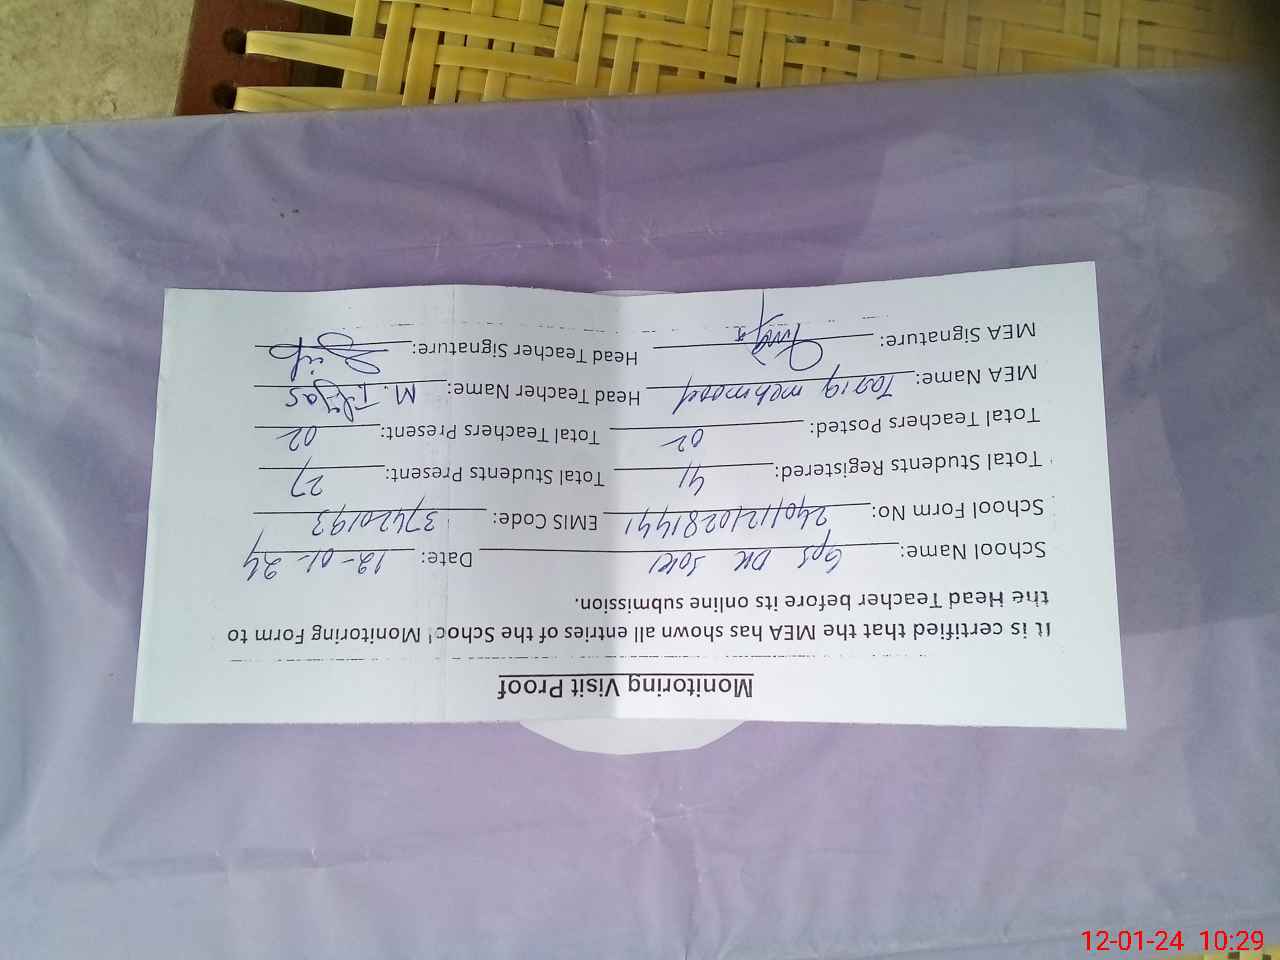 Monitoring Visit Proof
It is certified that the MEA has shown all entries of the School Monitoring Form to
the Head Teacher before its online submission.
School Name: GPS DK Date: 12-01-24
School Form No: 24011210281441 EMIS Code: 37420193
Total Students Registered: 41 Total Students Present: 27
Total Teachers Posted: 02 Total Teachers Present: 02
MEA Name: Tariq mehmood Head Teacher Name: M. Ilyas
MEA Signature: Head Teacher Signature:
12-01-24 10:29